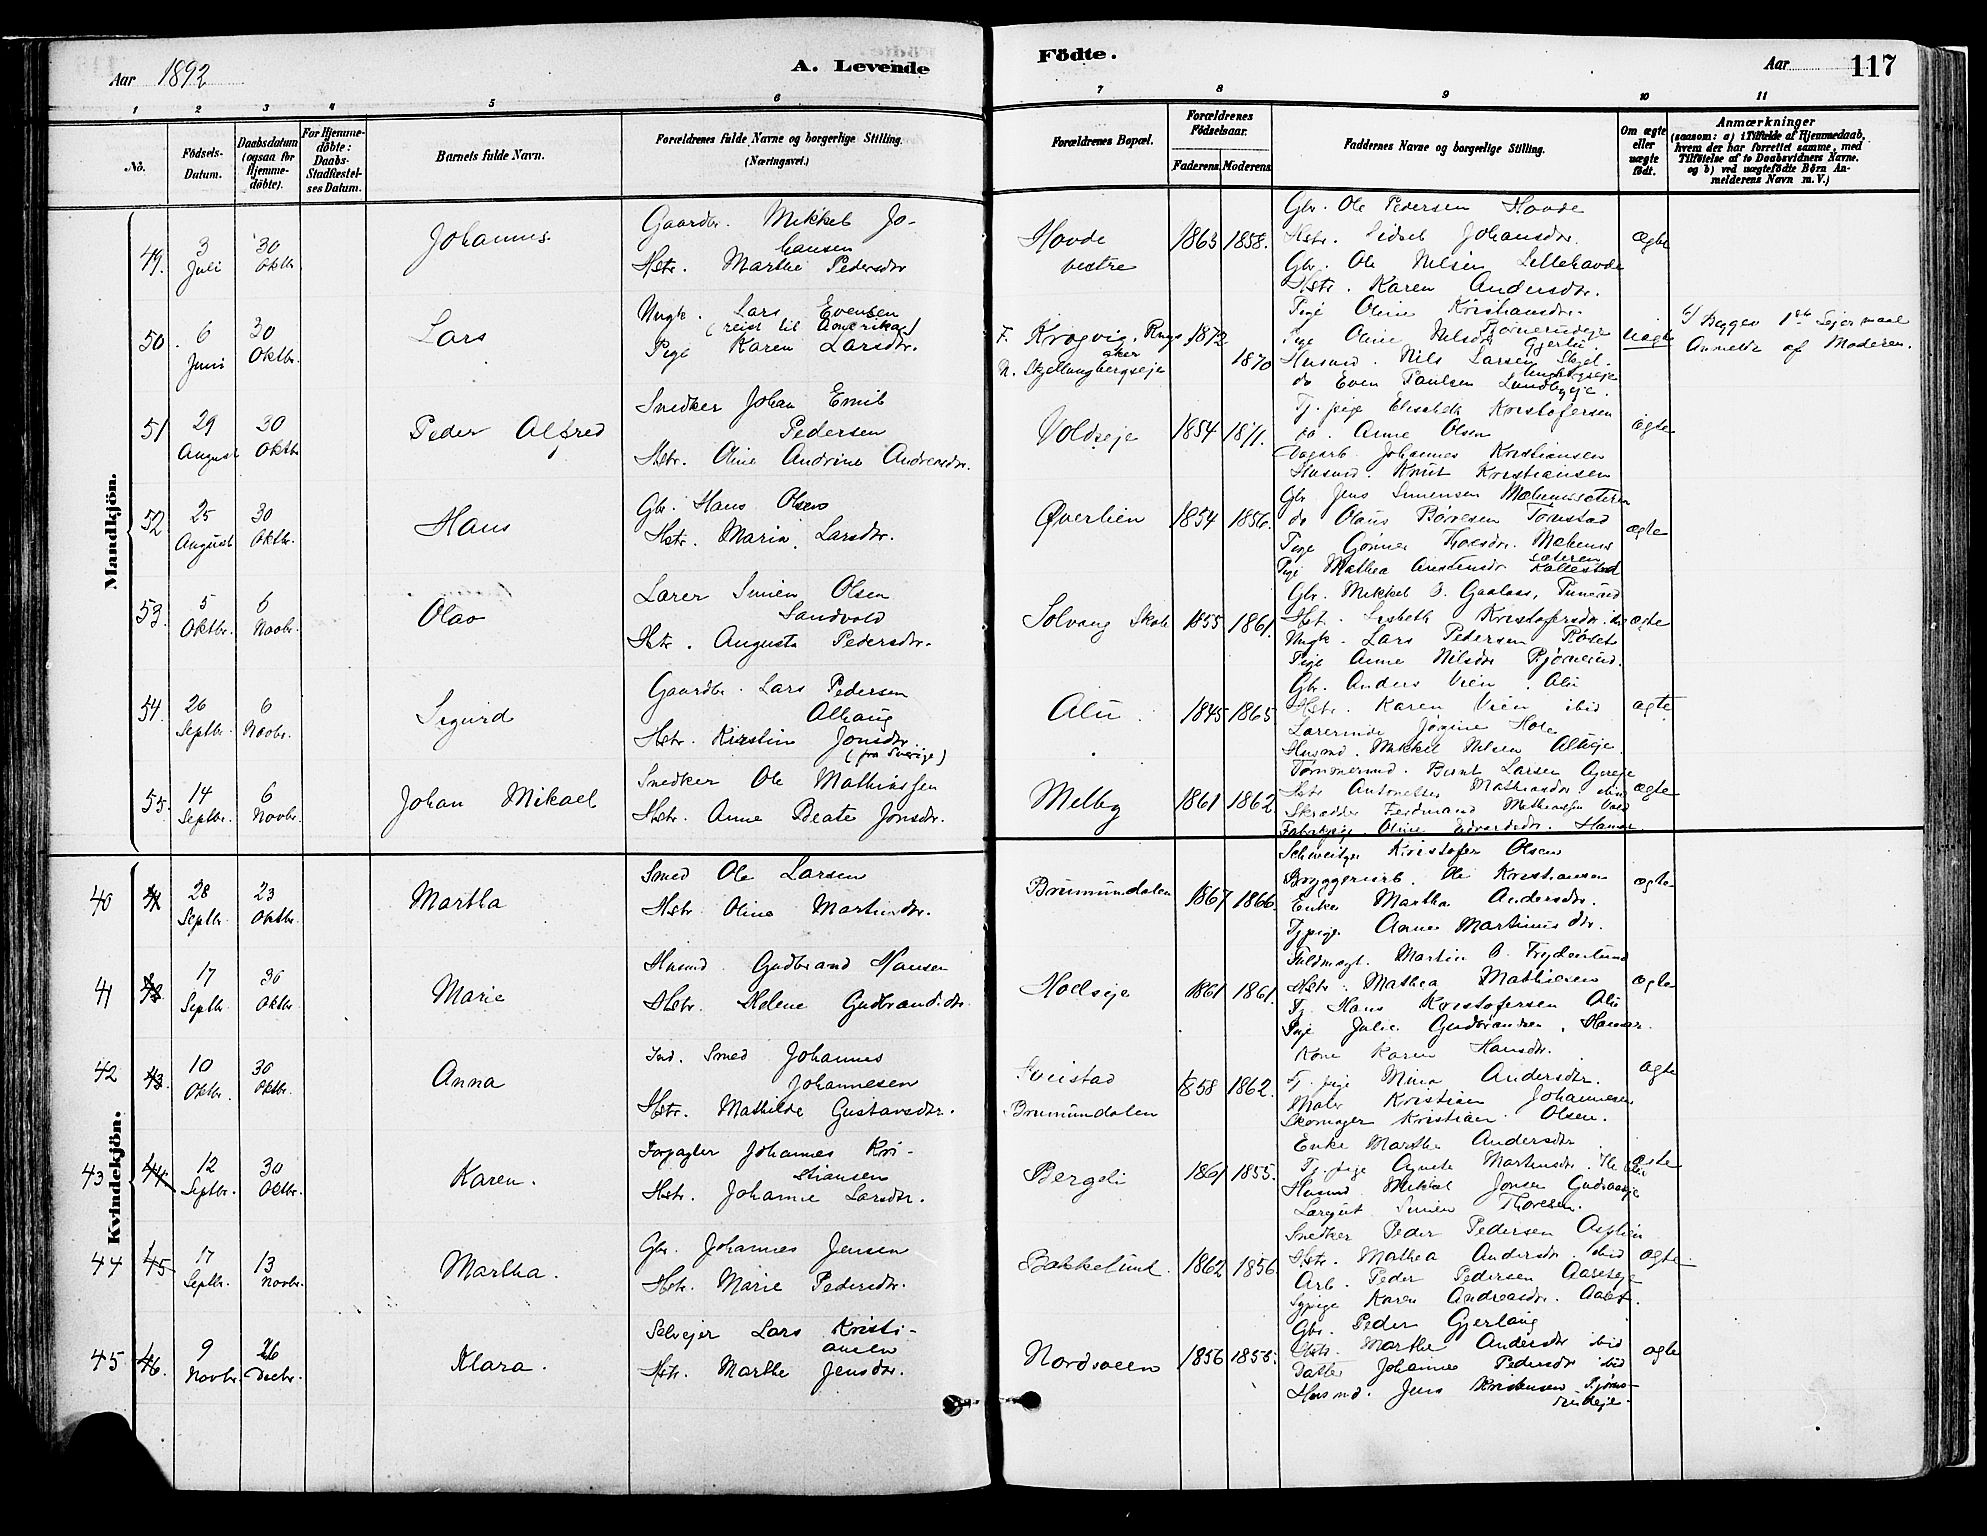 Aar 1892
A. Levende
Födte.
Aar
117
1 2 3 4 5 6 7 8 9 10 11
No.
Fødsels-
Datum.
Daabsdatum
(ogsaa for
Hjemme-
døbte).
For Hjemme-
döbte:
Daabs-
Stadfæstel-
ses Datum.
Barnets fulde Navn.
Forældrenes fulde Navne og borgerlige Stilling.
(Næringsvei.)
Forældrenes Bopæl.
Forældrenes
Fødselsaar.
Faderens. Moderens.
Faddernes Navne og borgerlige Stilling.
Om ægte
eller
uægte
født.
Anmærkninger
(saasom: a) i Tilfælde af Hjemmedaab,
hvem der har forrettet samme, med
Tilføielse af to Daabsvidners Navne.
og b) ved uægtefødte Børn An-
melderens Navn m.V.)
Mandkjön.
49. 3 Juli 30 Oktbr.
Johannes
Gaardbr. Mikkel Jo-
hansen
Hstr. Marthe Pedersdtr
Hovde
vestre
1863 1858.
Gbr. Ole Pedersen Hovde
Hstr. Sidsel Johansdtr.
Gbr. Ole Nilsen Lillehovde
Hstr. Karen Andersdtr.
ægte
50. 6 Juni 30 Oktbr.
Lars
Ungk. Lars Evensen
(reist til Amerika)
Pige Karen Larsdtr.
F. Krogvig, Rings-
aker
M. Skjellungbergseje
1872
1870
Pige Oline Kristiansdtr.
Bjørnerudeje
Pige Oline Nilsdtr Gjerlu
Husmd. Nils Larsen Skjel-
lungbergseje
do Even Paulsen Lundbyeje.
uægte
b/ Begges 1ste Lejermaal
Anmeldt af Moderen.
51 29 August 30 Oktbr
Peder Alfred
Snedker Johan Emil
Pedersen
Hstr. Oline Andrine Andreasdtr.
Voldseje
1854 1871.
Tj. pige Elisabeth Kristofersen
do. Anne Olsen
Johannes Kristiansen
Husmd. Knut Kristiansen
ægte
52. 25 August 30 Oktbr.
Hans
Gbr. Hans Olsen
Hstr. Maria Larsdtr.
Øverlien
1854 1856.
Gbr Jens Simensen Mælumsæteren
do Olaus Børresen Tomstad
Pige Gønner Thoresdtr. Mælums-
sæteren
Pige Mathea Kallestad
ægte
53. 5 Oktbr. 6 Novbr.
Olav
Lærer Simen Olsen
Sandvold
Hstr. Augusta Pedersdtr.
Solvang Skole
1855 1861.
Gbr. Mikkel O. Gaalaas,
Hst. Lisbeth Kristofersdtr. ibd
Ungk. Lars Pedersen Røset
Pige Anne Nilsdtr Bjørnerud.
ægte
54. 26 Septbr. 6 Novbr.
Sigurd
Gaardbr. Lars Pedersen
Alhaug
Hstr. Kirstin Jonsdtr
(fra Sverige)
Alu
1845 1865
Gbr. Anders Vien, Alu
Hstr. Karen Vien ibid
Lærerinde Jørgine Hole
Husmd. Mikkel Nilsen Alueje.
ægte
55. 14 Septbr. 6 Novbr.
Johan Mikael
Snedker Ole Mathiassen
Hstr. Anne Beate Jonsdtr.
Melby
1861 1862
Tømmermd. Bernt Larsen Agereje
Hstr Antonette Mathiasdtr ibid
Skrædder Ferdinand Mathiassen Vold
Fabrikpige Oline Edvardsdtr. Hamar
ægte
Kvindekjön.
40 28 Septbr. 23 Oktbr.
Martha
Smed Ole Larsen
Hstr. Oline Martinsdtr.
Brumundalen
1867 1866.
Schweitzer Kristofer Olsen
Bryggeriarb. Ole Kristiansen
Enke Martha Andersdtr.
Tjpige Anne Martinusdtr.
ægte
41 17 Septbr. 30 Oktbr.
Marie
Husmd. Gudbrand Hansen
Hstr. Helene Gudbrandsdtr.
Hoelseje
1861 1861.
Fuldmægt. Martin O. Frydenlund
Hstr. Mathea Mathiesen
Tj. Hans Kristofersen Alu
Pige Julie Gudbrandsen, Hamar.
ægte
42 43. 10 Oktbr. 30 Oktbr.
Anna
Ind. Smed Johannes
Johannesen
Hstr. Mathilde Gustavsdtr.
Sveistad
Brumundalen
1858 1862.
Kone Karen Hansdtr.
Tj. pige Mina Andersdtr.
Maler Kristian Johannesen
Skomager Kristian Olsen.
ægte
43 44 12 Septbr. 30 Oktbr.
Karen.
Forpagter Johannes Kri-
stiansen
Hstr. Johanne Larsdtr.
Bergeli
1861 1855.
Enke Marthe Andersdtr
Tj. pige Agnete Martinsdtr.
Husmd. Mikkel Jonsen
Simen Thoresen.
ægte
44 45 17 Septbr. 13 Novbr.
Martha.
Gbr. Johannes Jensen
Hstr. Marie Pedersdtr.
Bakkelund.
1862 1856
Snedker Peder Pedersen Asplien
Hstr. Mathea Andersdtr. ibid
Arb. Peder Pedersen Aaseteje
Sypige Karen Andreasdtr. Aaset.
ægte.
45 46. 9 Novbr. 26 Decbr.
Klara.
Selvejer Lars Kristi-
ansen
Hstr. Marthe Jensdtr.
Nordsveen
1856 1855.
Gbr. Peder Gjerlaug
Hstr. Marthe Andersdtr ibid
Datter Johanne Pedersdtr ibid
Husmd. Jens Kristensen Bjørne-
rudeje.
ægte